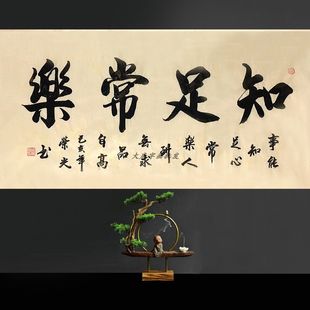 知足常樂
事能
知
足心
常
樂人
到
無求
品
自高
己亥年
榮光
书